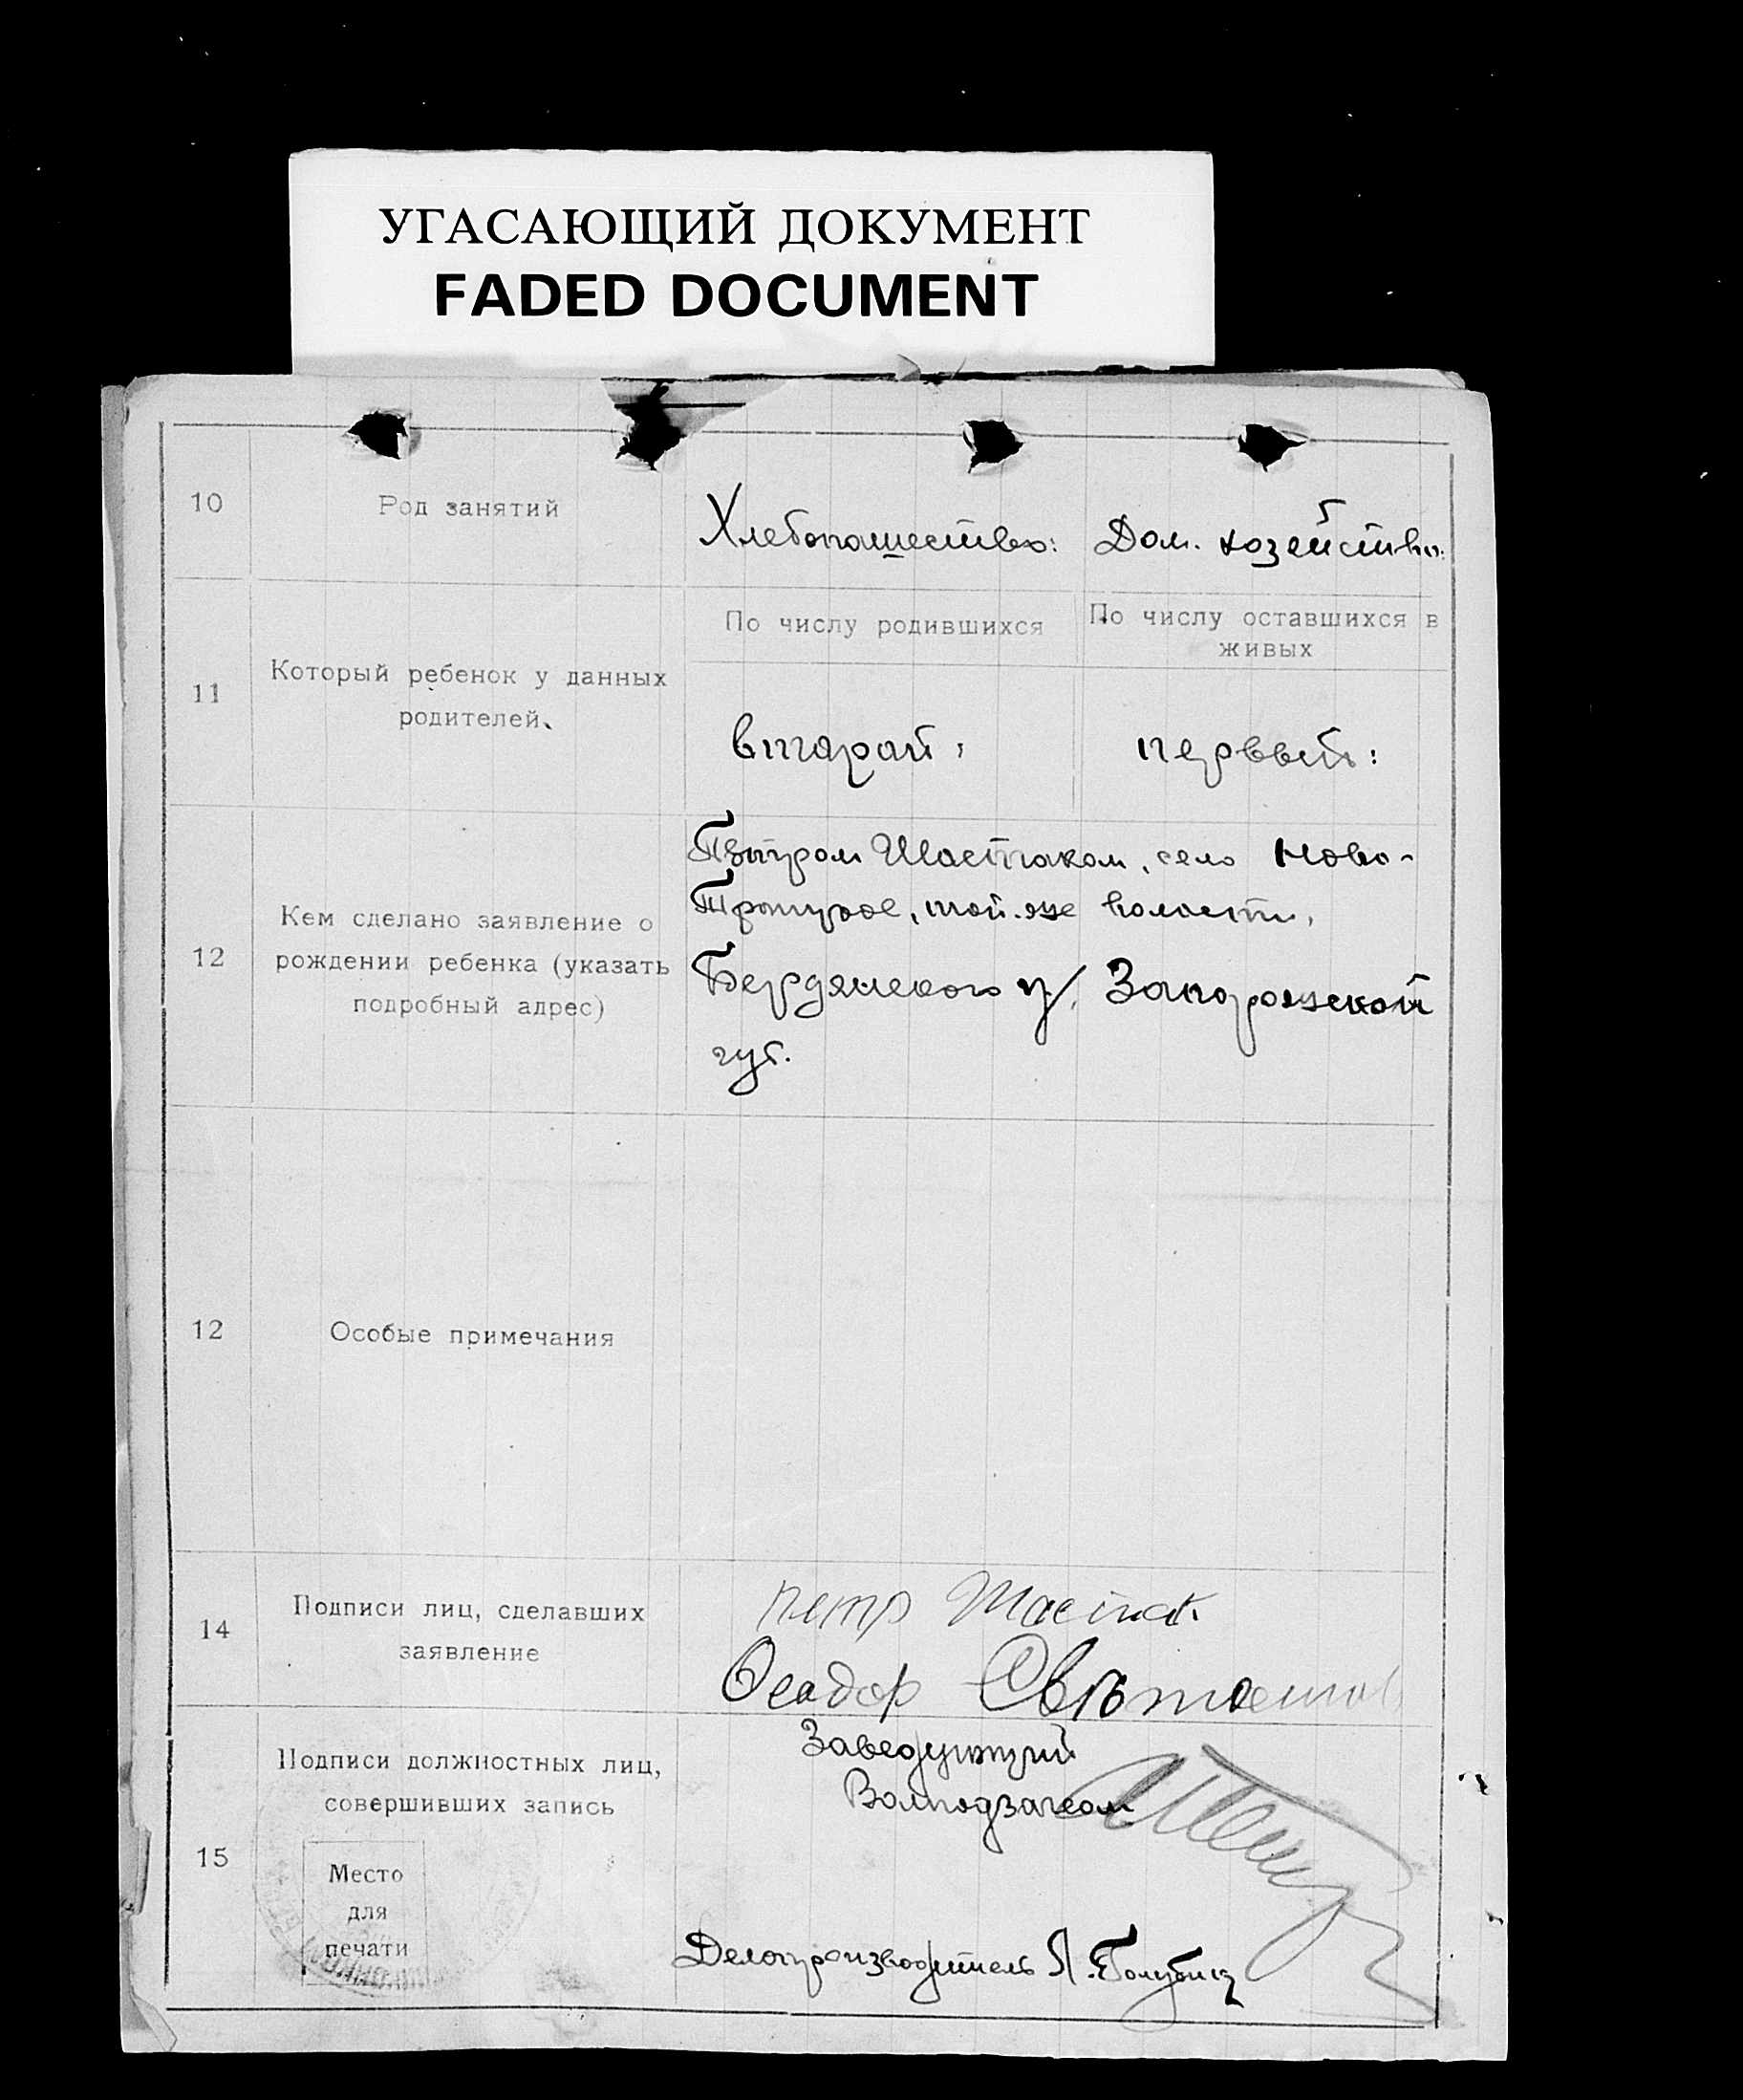 УГАСАЮЩИЙ ДОКУМЕНТ
FADED DOCUMENT
10
Род занятий
Хлебопашество:
Дом. хозейство:
11
Который ребенок у данных
родителей.
По числу родившихся
По числу оставшихся в
живых
вторай:
первый:
12
Кем сделано заявление о
рождении ребенка (указать
подробный адрес)
Пётром Шостаком, село Ново-
той-же волости,
Бердянского у/. Запорожской
губ.
12
Особые примечания
14
Подписи лиц, сделавших
заявление
петр Шостак
Феадор
15
Подписи должностных лиц,
совершивших запись
Место
для
печати
Заведующий
Волподзагсом
Делопроизводитель Я. Голубец